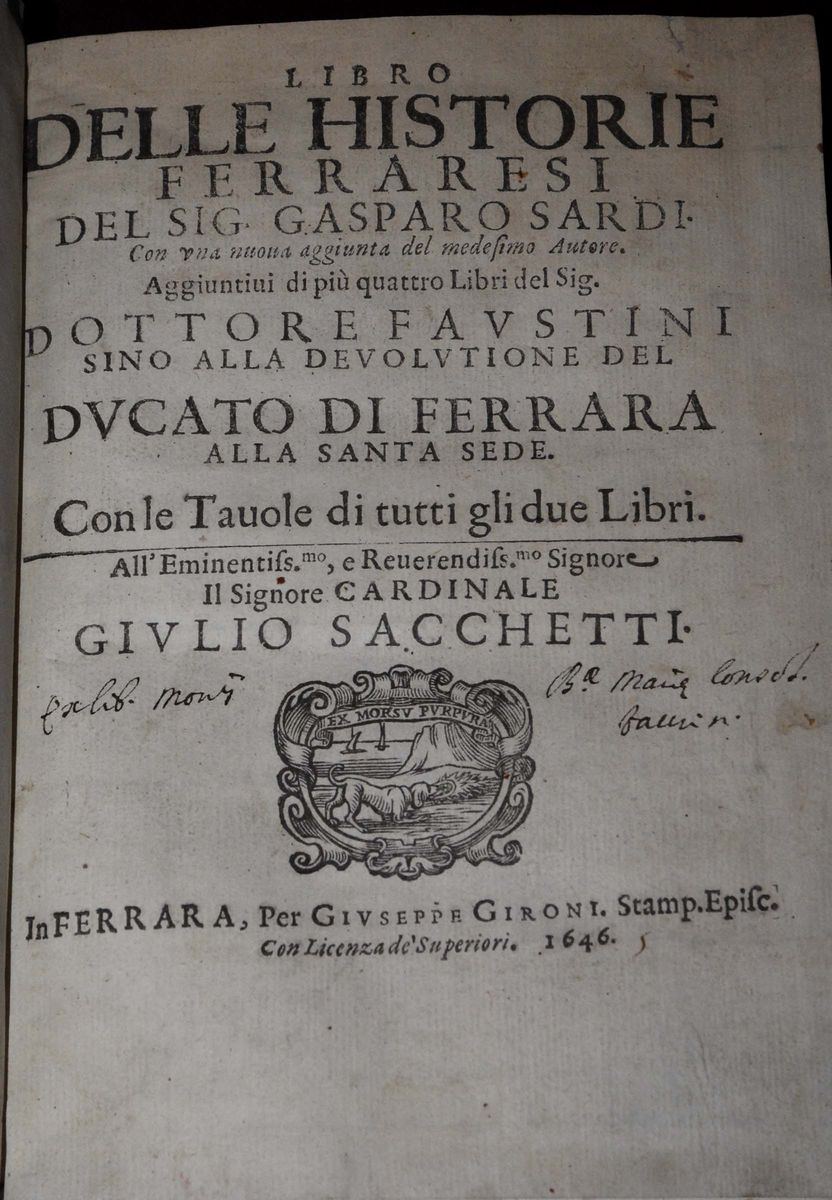 LIBRO
DELLE HISTORIE
FERRARESI
DEL SIG. GASPARO SARDI.
Con vna nuoua aggiunta del medeſimo Autore.
Aggiuntiui di più quattro Libri del Sig.
DOTTORE FAVSTINI
SINO ALLA DEVOLVTIONE DEL
DVCATO DI FERRARA
ALLA SANTA SEDE.
Con le Tauole di tutti gli due Libri.
All'Eminentiſs.mo, e Reuerendiſs.mo Signore
Il Signore CARDINALE
GIVLIO SACCHETTI.
Ex lib.
EX MORSV PVRPVRA
In FERRARA, Per GIVSEPPE GIRONI. Stamp. Epiſc.
Con Licenza de' Superiori. 1646.